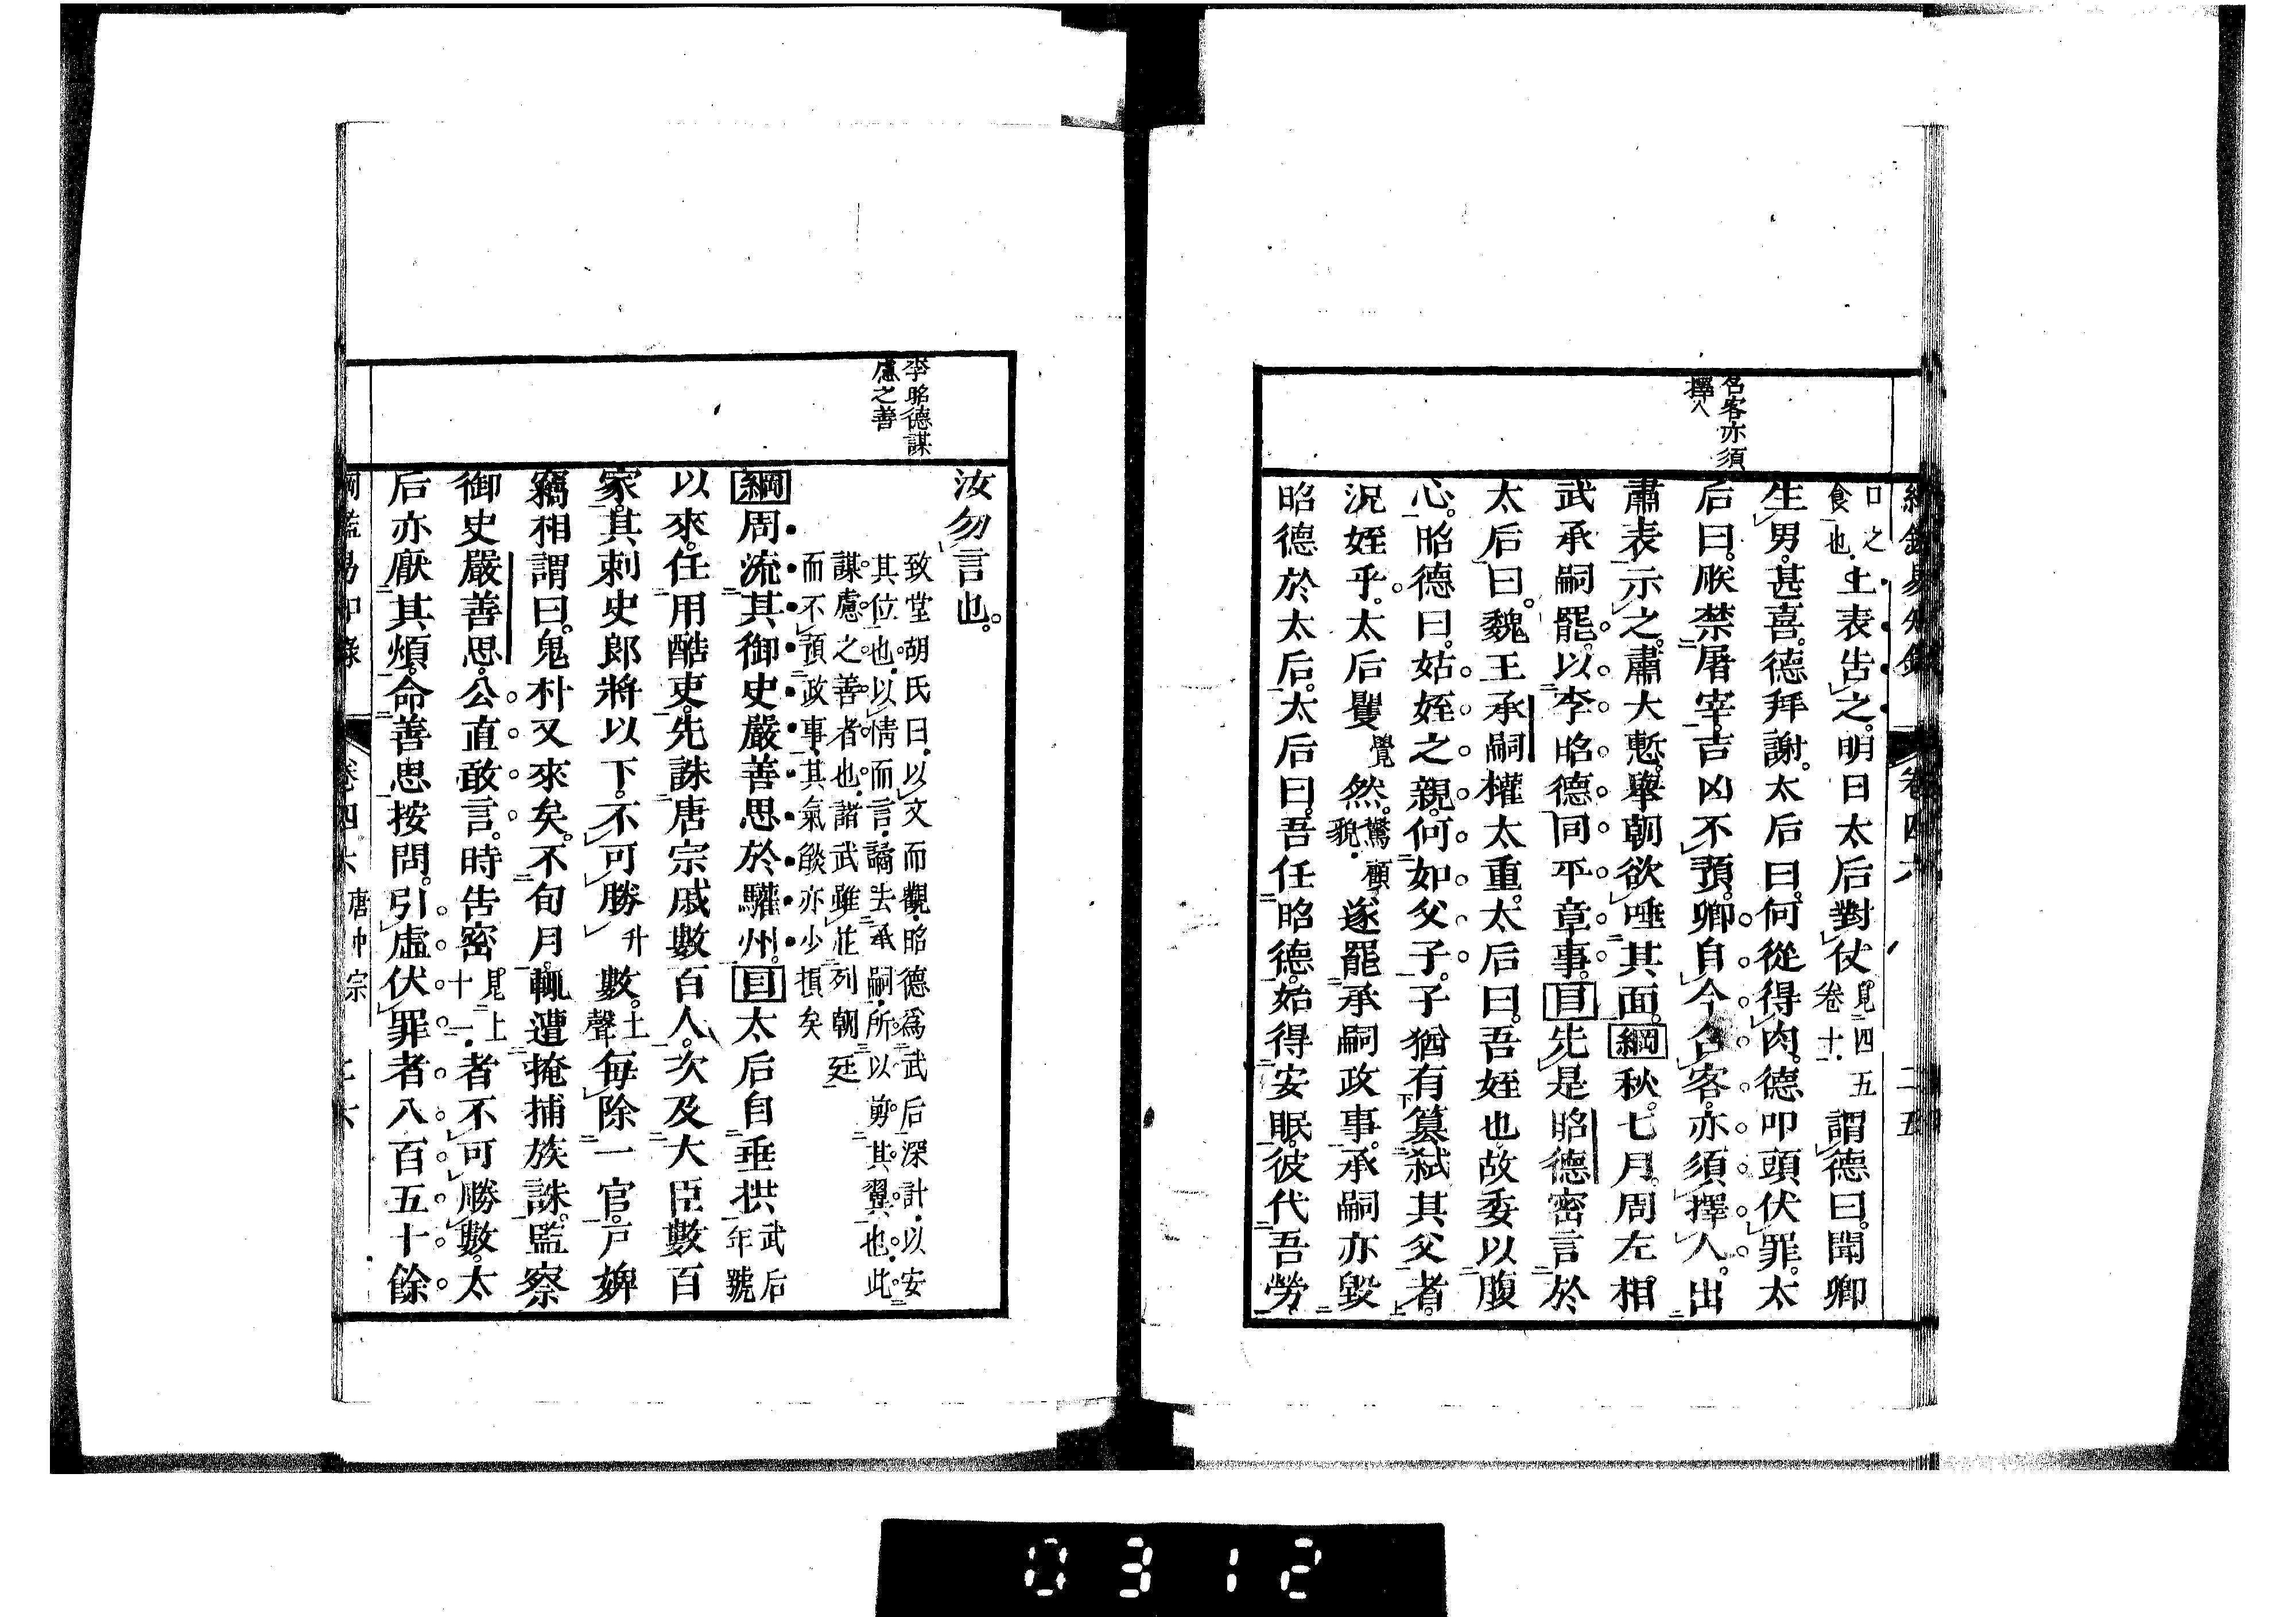 綱鑑易知錄
卷四六
二五
召客亦須
擇人
口之
食也
上表告之。明日太后對仗
見四五
卷十
謂德曰。聞卿
生男。甚喜。德拜謝。太后曰。何從得肉。德叩頭伏罪。太
后曰。朕禁屠宰。吉凶不預。卿自今召客。亦須擇人。出
肅表示之。肅大慙。舉朝欲唾其面。綱秋。七月。周左相
武承嗣罷。以李昭德同平章事。目先是昭德密言於
太后曰。魏王承嗣權太重。太后曰。吾姪也故委以腹
心。昭德曰。姑姪之親。何如父子。子猶有篡弑其父者。
況姪乎。太后矍
覺
然。
驚顧
貌
遂罷承嗣政事。承嗣亦毀
昭德於太后。太后曰。吾任昭德。始得安眠。彼代吾勞
李昭德謀
慮之善
汝勿言也。
致堂胡氏曰。以文而觀。昭德為武后深計。以安
其位也。以情而言。譎去承嗣。所以剪其翼也。此
謀慮之善者也。諸武雖茌列朝廷
而不預政事。其氣燄亦少損矣
綱周流其御史嚴善思於驩州。目太后自垂拱
武后
年號
以來。任用酷吏。先誅唐宗戚數百人。次及大臣數百
家。其刺史郎將以下。不可勝
升
數。
上
聲
每除一官。戶婢
竊相謂曰。鬼朴又來矣。不旬月。輒遭掩捕族誅。監察
御史嚴善思。公直敢言。時告密
見上
十一
者不可勝數。太
后亦厭其煩。命善思按問。引虛伏罪者八百五十餘
綱鑑易知錄
卷四六
唐中宗
二六
0312